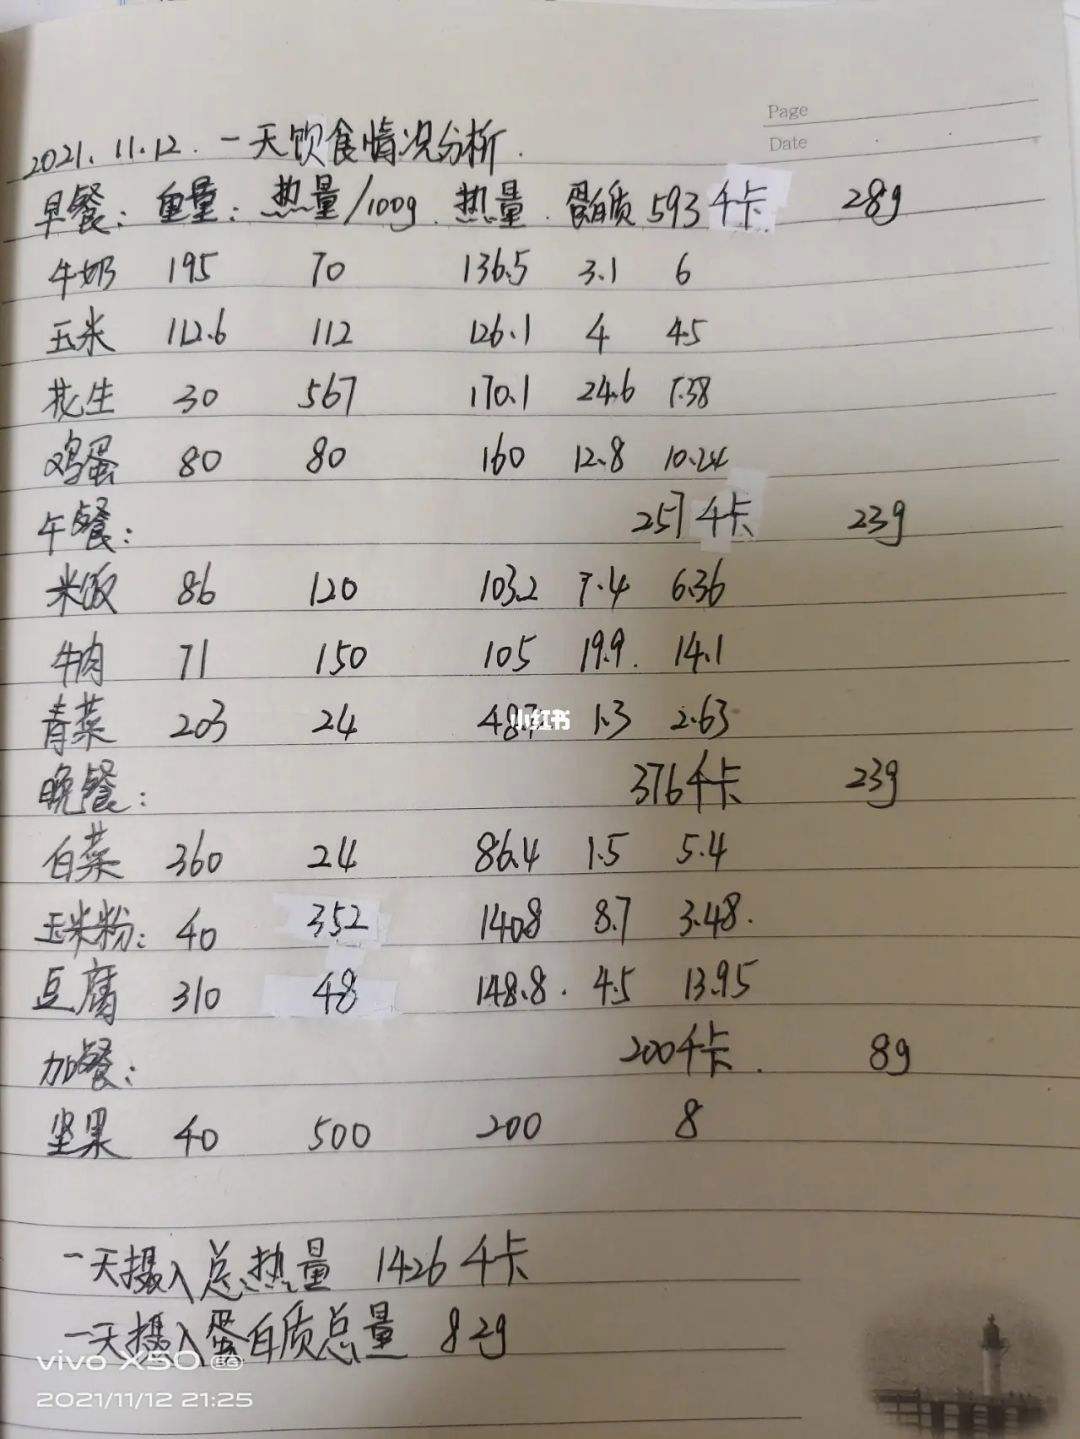 Page
Date
2021.11.12. 一天饮食情况分析.
早餐: 重量: 热量/100g. 热量. 蛋白质 593千卡 28g
牛奶 195 70 136.5 3.1 6
玉米 112.6 112 126.1 4 4.5
花生 30 567 170.1 24.6 7.38
鸡蛋 80 80 160 12.8 10.24
午餐: 257千卡 23g
米饭 86 120 103.2 7.4 6.36
牛肉 71 150 105 19.9. 14.1
青菜 203 24 48.7 1.3 2.63
小红书
晚餐: 376千卡 23g
白菜 360 24 86.4 1.5 5.4
玉米粉: 40 352 140.8 8.7 3.48.
豆腐 310 48 148.8. 4.5 13.95
加餐: 200千卡. 8g
坚果 40 500 200 8
一天摄入总热量 1426千卡
一天摄入蛋白质总量 82g
vivo X50 5G
2021/11/12 21:25